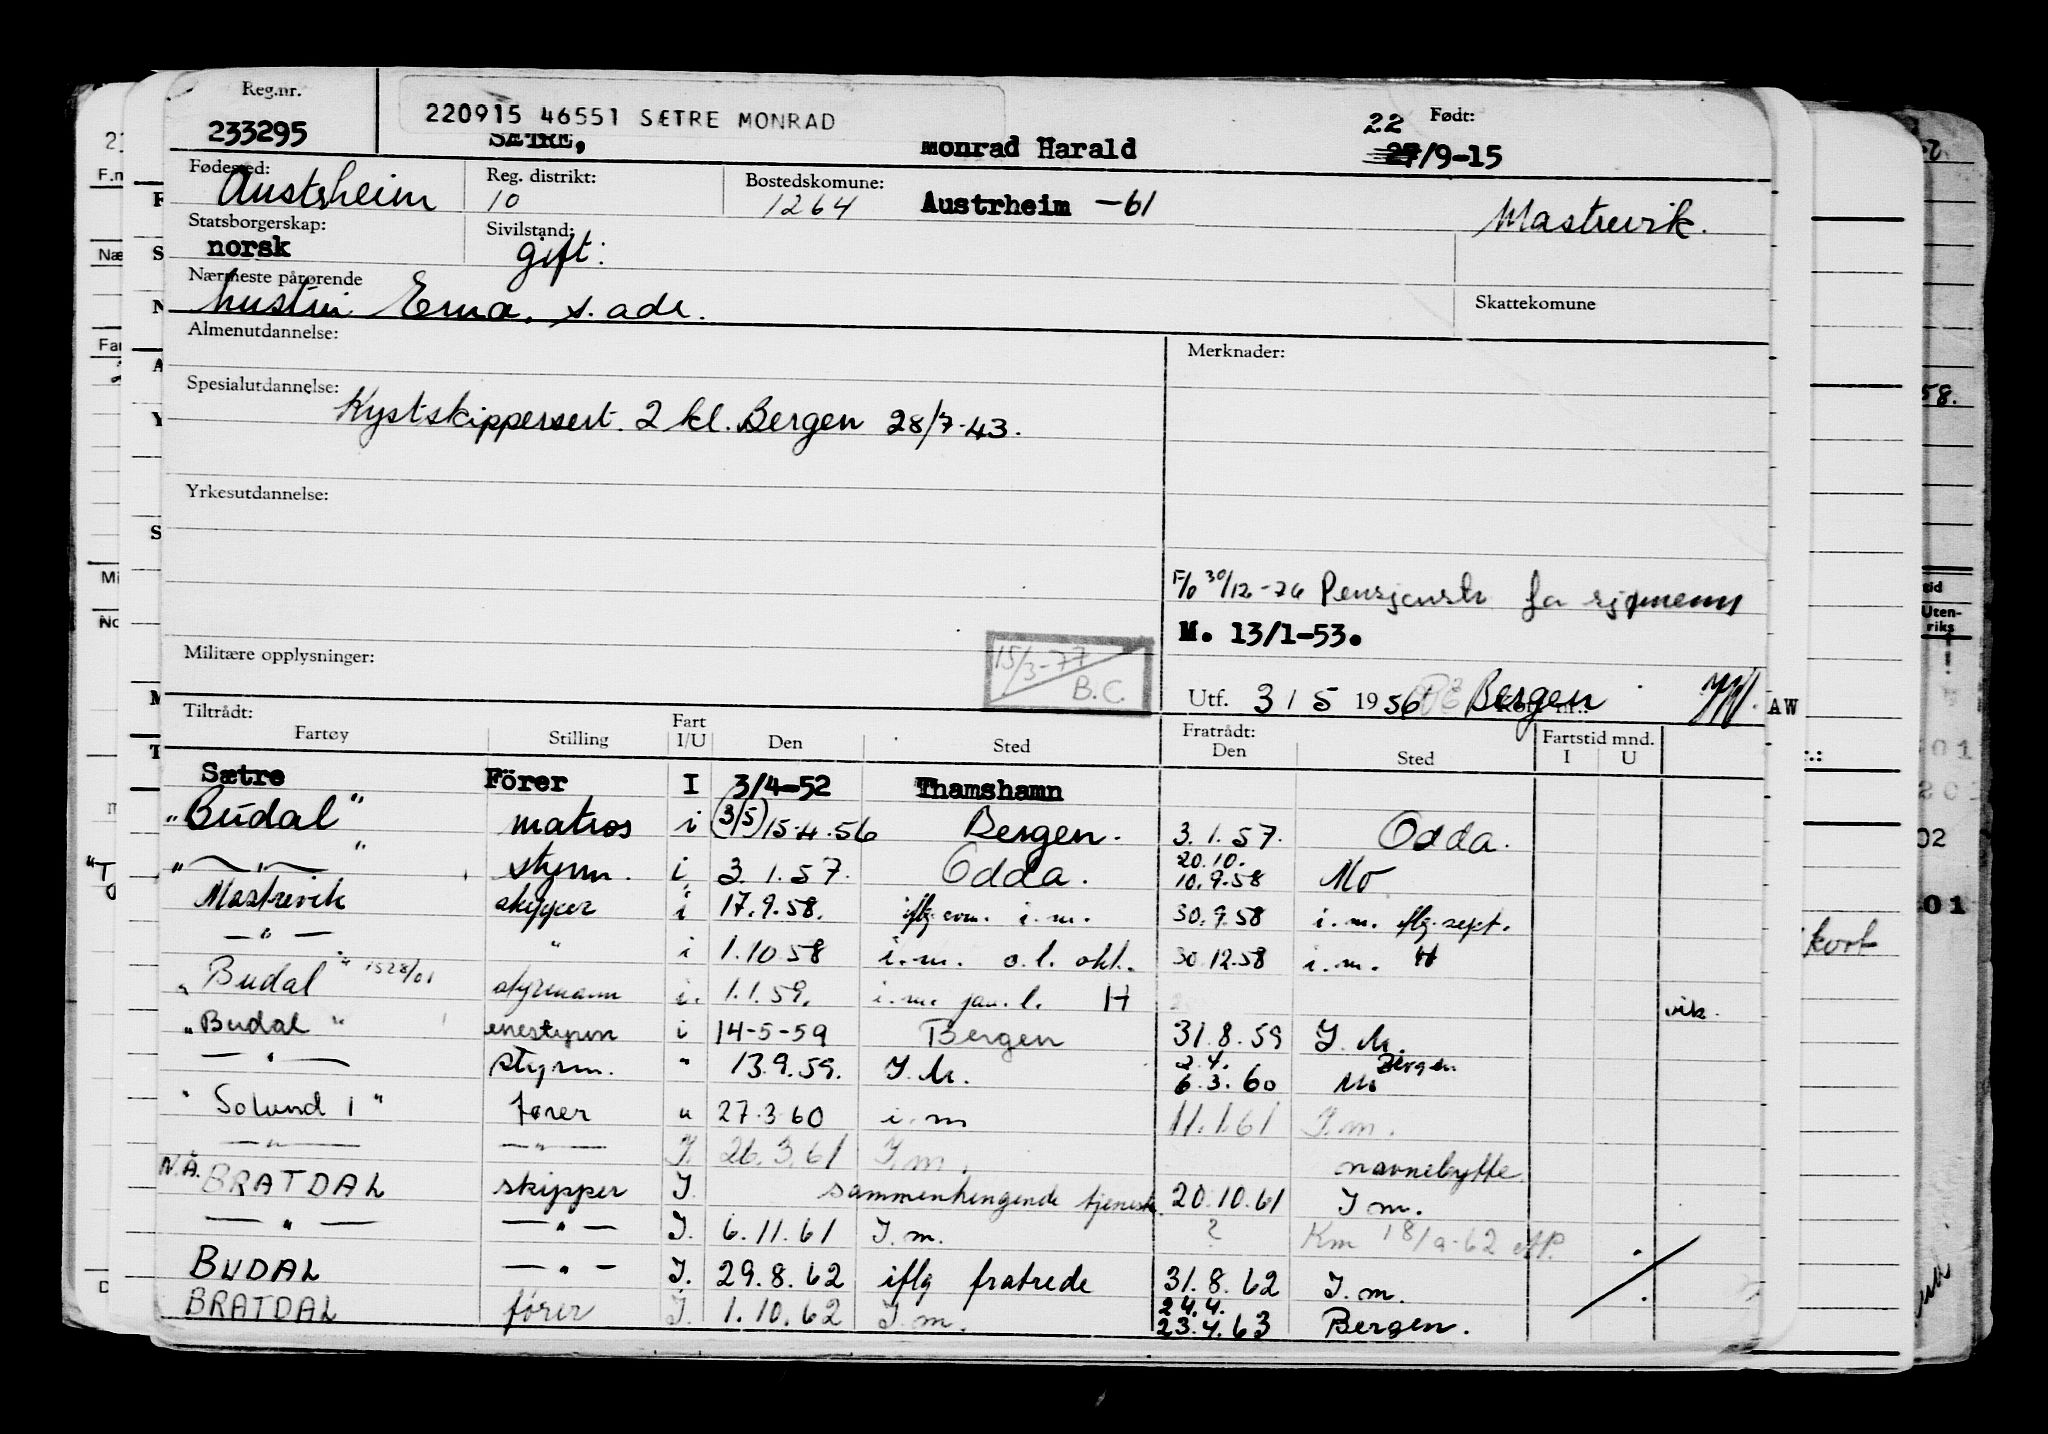 Reg.nr. 233295
220915 46551 SÆTRE MONRAD
SÆTRE, Monrad Harald
Født: 22 27/9-15
Fødested: Austrheim
Reg. distrikt: 10
Bostedskomune: 1264 Austrheim -61
Mastrevik.
Statsborgerskap: norsk
Sivilstand: gift.
Nærmeste pårørende
hustru Erna, s. adr.
Skattekomune
Almenutdannelse:
Merknader:
Spesialutdannelse:
Kystskippersert. 2 kl. Bergen 28/7-43.
Yrkesutdannelse:
F/o 30/12-76 Pensjonstr for sjømenn
M. 13/1-53.
Militære opplysninger:
15/3-77
B.C.
Utf. 3 / 5 1956 Bergen
AW
Tiltrådt: Fratrådt:
Fartøy Stilling Fart I/U Den Sted Den Sted Fartstid mnd. I U
Sætre Förer I 3/4-52 Thamshamn
"Budal" matros i (3/5) 15.4.56 Bergen. 3.1.57. Odda.
" — " — " styrm. i 3.1.57. Odda. 20.10. 10.9.58 Mo
Mastrevik skipper i 17.9.58. i.m. 30.9.58 i.m. iflg. sept.
— " — " i 1.10.58 i.m. o.l. okt. 30.12.58 i.m. H
"Budal" 1528/01 styrmann i. 1.1.59. i.m. jan.l. H
vik.
"Budal" enestyrm i 14-5-59 Bergen 31.8.59 I.M.
— " — styrm. " 13.9.59. I.M. 2.4. Bergen 6.3.60 Mo
"Solund 1" fører " 27.3.60 i.m 11.1.61 I.m.
— " — — " — I. 26.3.61 I.m. navnebytte
N.Å. BRATDAL skipper I. sammenhengende tjeneste. 20.10.61 I m.
— " — — " — I. 6.11.61 I.m. ? Km 18/9-62
BUDAL — " — I. 29.8.62 iflg fratrede 31.8.62 I.m.
BRATDAL fører I. 1.10.62 I.m. 24.4. 23.4.63 Bergen.
kort